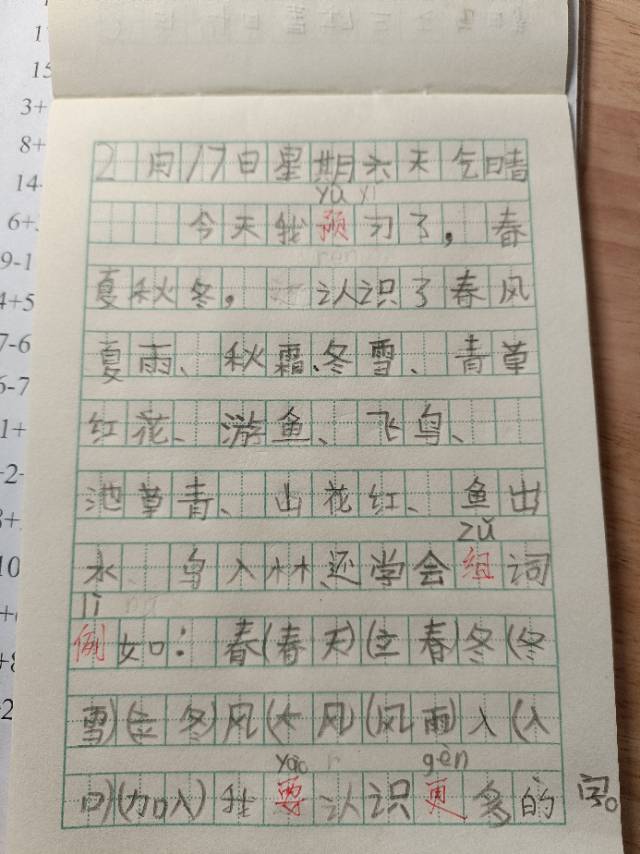 1
15
3+
8+
14
6+
9-1
4+5
7-6
6-7
1+
2月17日星期六天气晴
yù xí
今天我预习了，春
夏秋冬，认识了春风
夏雨、秋霜、冬雪、青草
红花、游鱼、飞鸟、
池草青、山花红、鱼出
zǔ
水、鸟入林还学会组词
lì
例如：春(春天)(立春)冬(冬
雪)(立冬)风(大风)(风雨)入(入
yào gèn
口)(加入)我要认识更多的字。